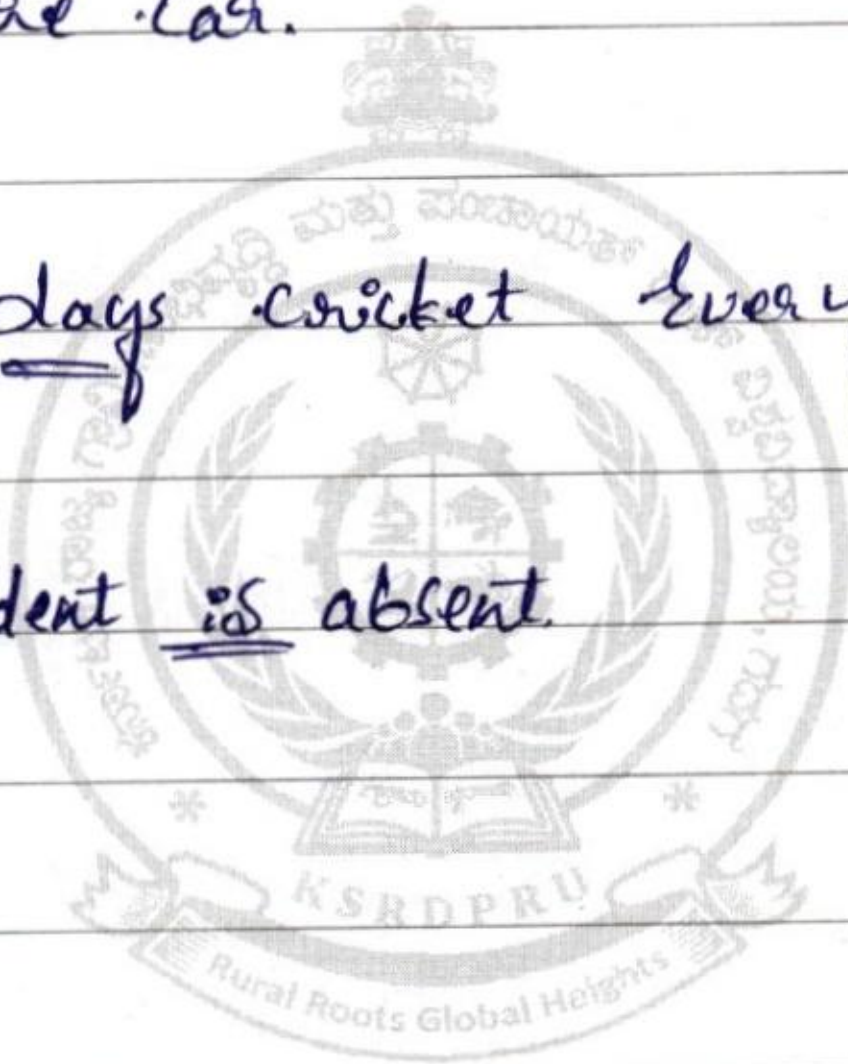 car.
days cricket Ever
dent is absent.
ಮತ್ತು ಪಂಚಾಯತ್
KSRDPRU
Rural Roots Global Heights